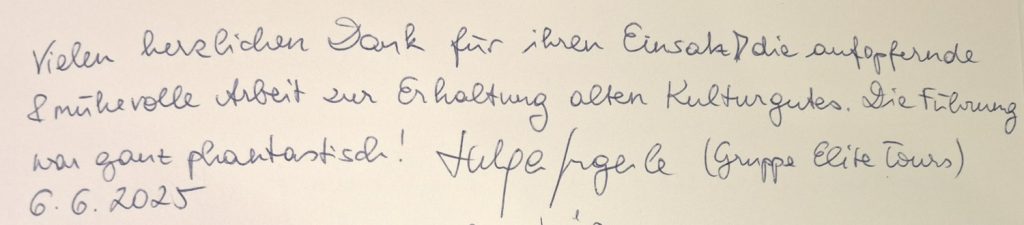 Vielen herzlichen Dank für ihren Einsatz, die aufopfernde
& mühevolle Arbeit zur Erhaltung alten Kulturgutes. Die Führung
war ganz phantastisch! (Gruppe Elite Tours)
6.6.2025